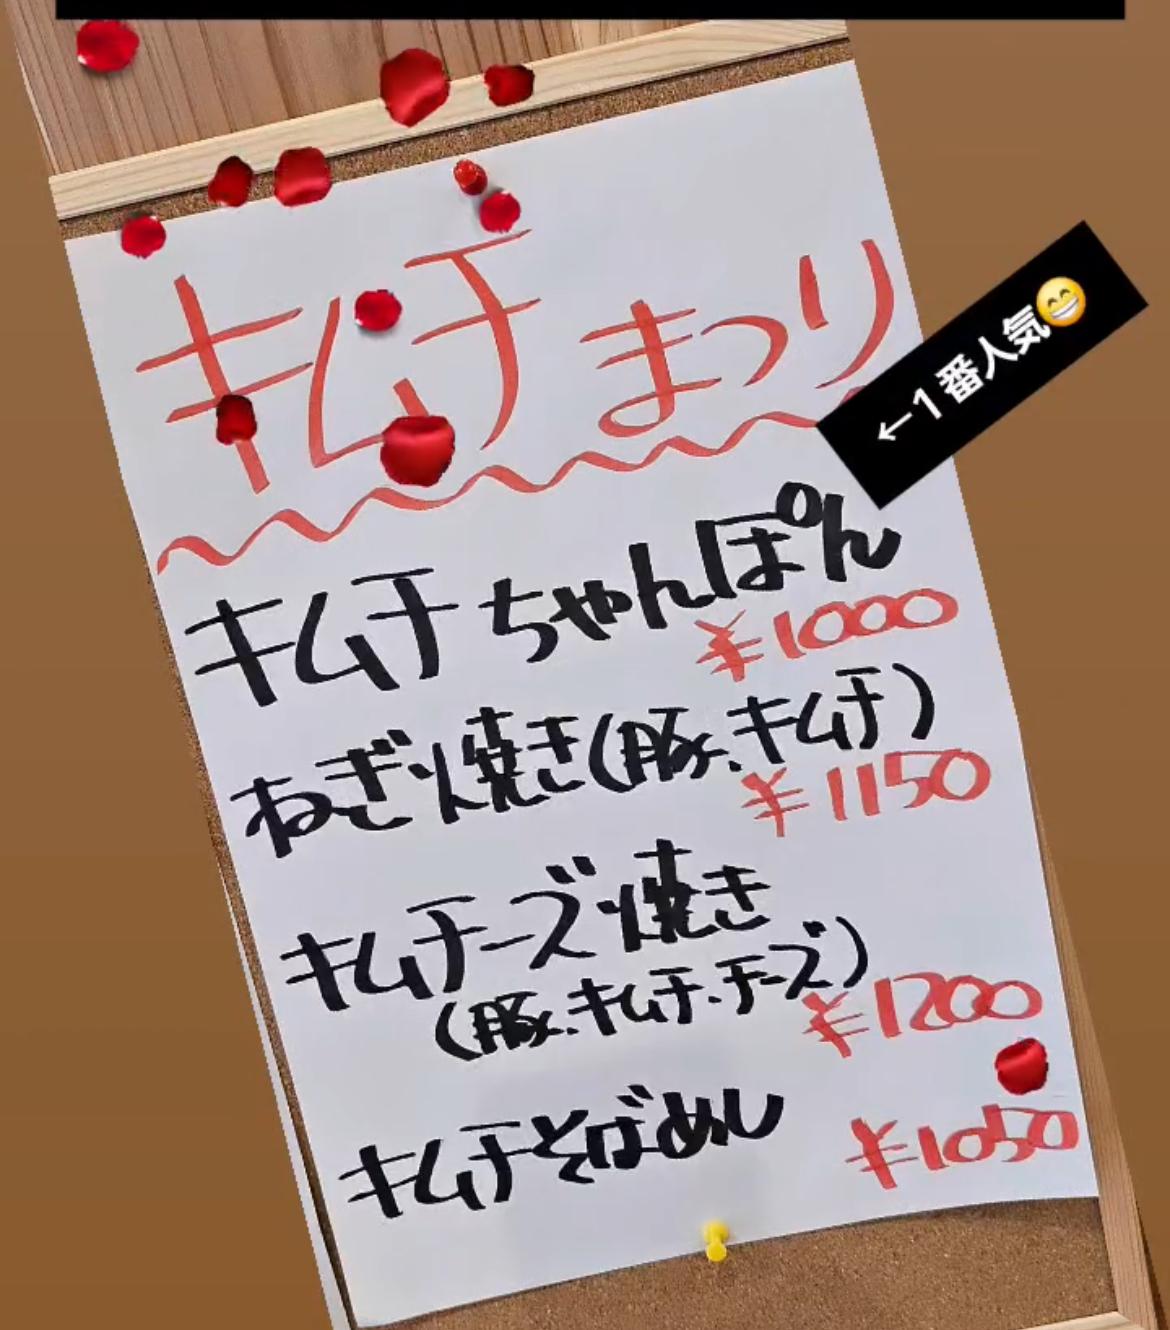 キムチまつり
←1番人気😁
キムチちゃんぽん
¥1000
ねぎ焼き(豚、キムチ)
¥1150
キムチーズ焼き
(豚、キムチ、チーズ)
¥1200
キムチそばめし
¥1050